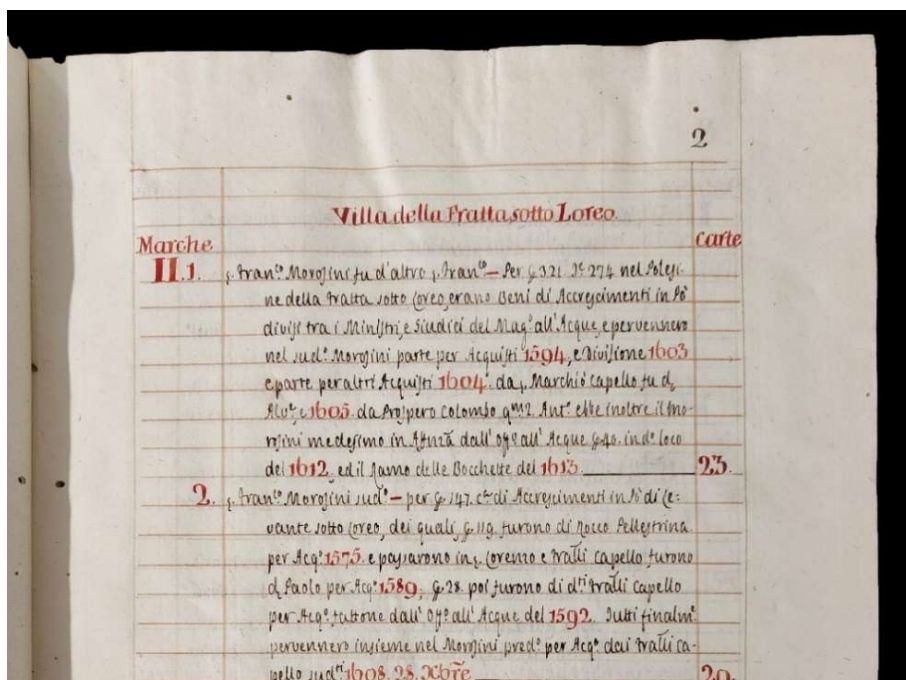 2
Villa della Fratta sotto Loreo.
Marche
Carte
II.1. Fran.co Morosini fu d'altro Fran.co — Per 321 274 nel Polesi-
ne della Fratta sotto Loreo, erano Beni di Accrescimenti in Pò
divisi tra i Ministri, e Giudici del Mag.o all'Acque, e pervennero
nel sud.o Morosini parte per Acquisti 1594, e Divisione 1603
e parte per altri Acquisti 1604. da Marchiò Capello fu
Alv.e e 1605. da Prospero Colombo Ant.o ebbe inoltre il Mo-
rosini medesimo in dall' all'Acque 40. in d.o loco
del 1612, ed il Ramo delle Bocchette del 1613. 23.
2. Fran.co Morosini sud.o — per 147. di Accrescimenti in Pò di Le-
vante sotto Loreo, dei quali, 119. furono di Rocco Pellestrina
per Acq.o 1575. e passarono in Lorenzo e Fralli Capello furono
Paolo per Acq.o 1589, 28. poi furono di d.ti Fralli Capello
per Acq.o fattone dall' all'Acque del 1592. Tutti finalm.e
pervennero insieme nel Morosini pred.o per Acq.o dai Fralli Ca-
pello sud.ti 1608. 28. Xbre 29.